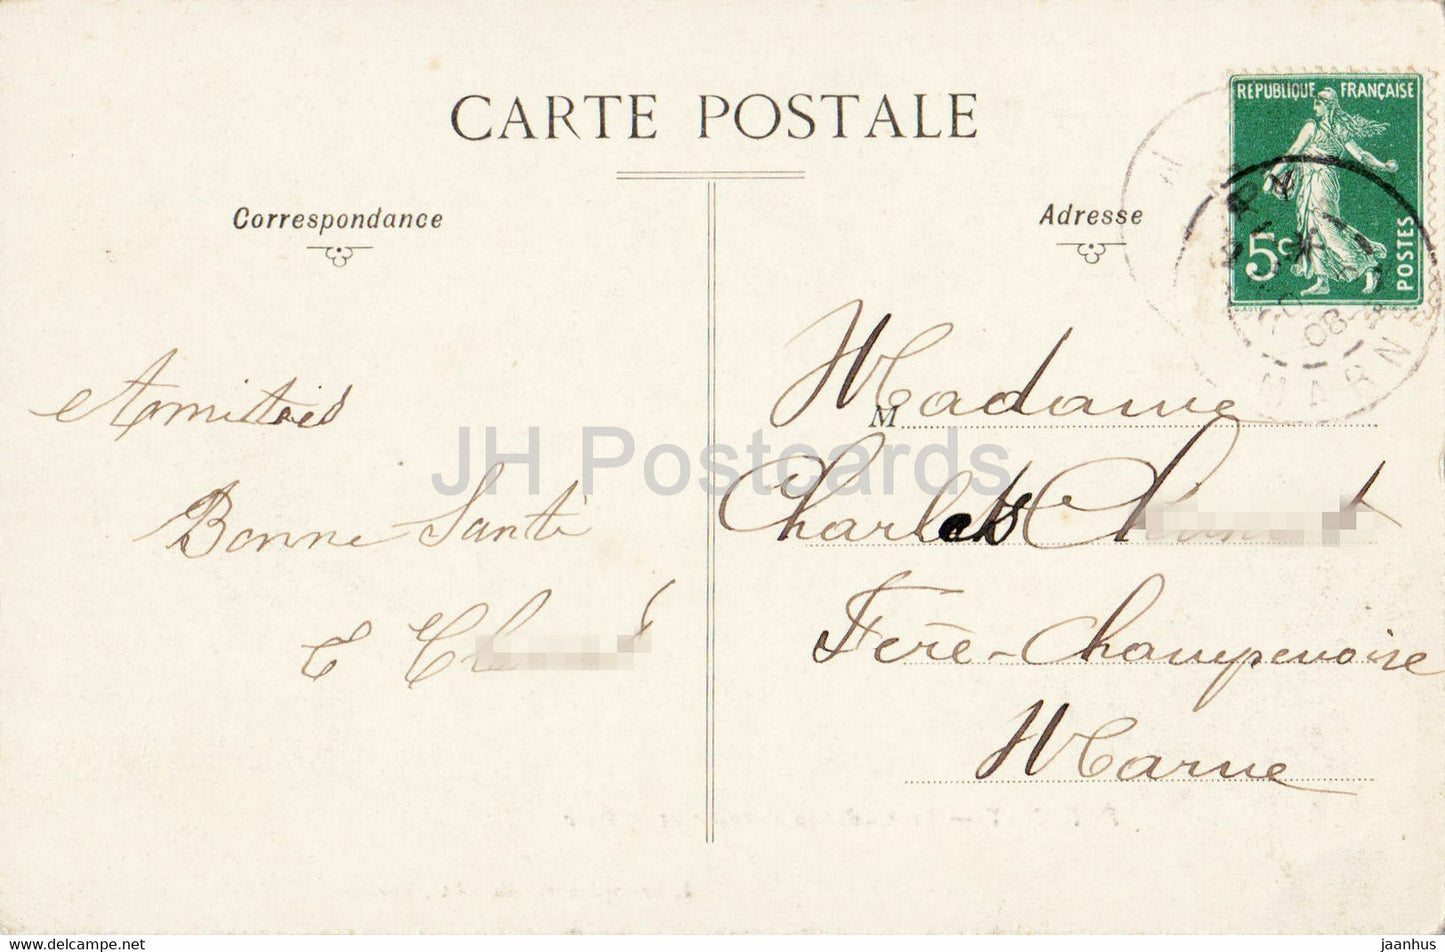 CARTE POSTALE
Correspondance
Adresse
RÉPUBLIQUE FRANÇAISE
5c
POSTES
08
MARN
Amitiés
Bonne Santé
M
Madame
Charles
Fère-Champenoise
Marne
JH Postcards
https://www.jhpostcards.net
jaanhus